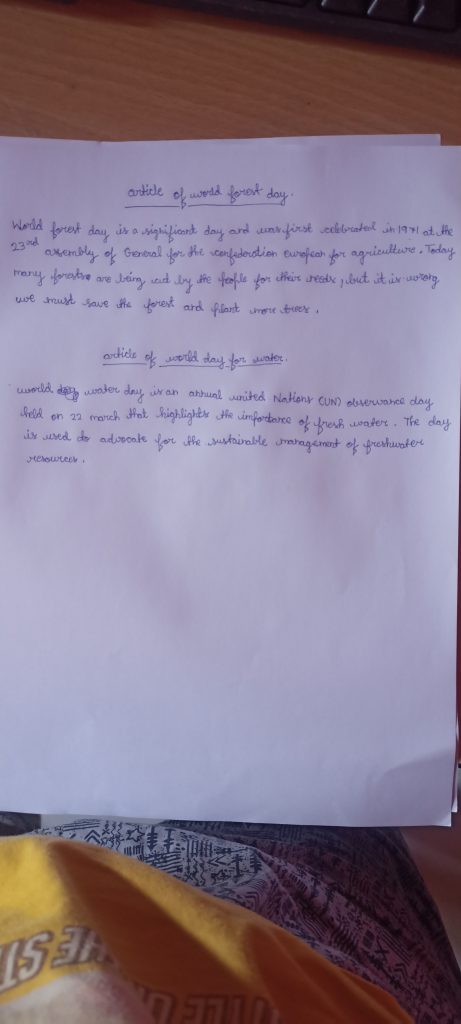 article of world forest day.
World forest day is a significant day and was first celebrated in 1971 at the
23rd assembly of General for the confederation European for agriculture. Today
many forests are being cut by the people for their needs, but it is wrong
we must save the forest and plant more trees.
article of world day for water.
world water day is an annual united Nations (UN) observance day
held on 22 march that highlights the importance of fresh water. The day
is used do advocate for the sustainable management of freshwater
resources.
THE ST
TLE O